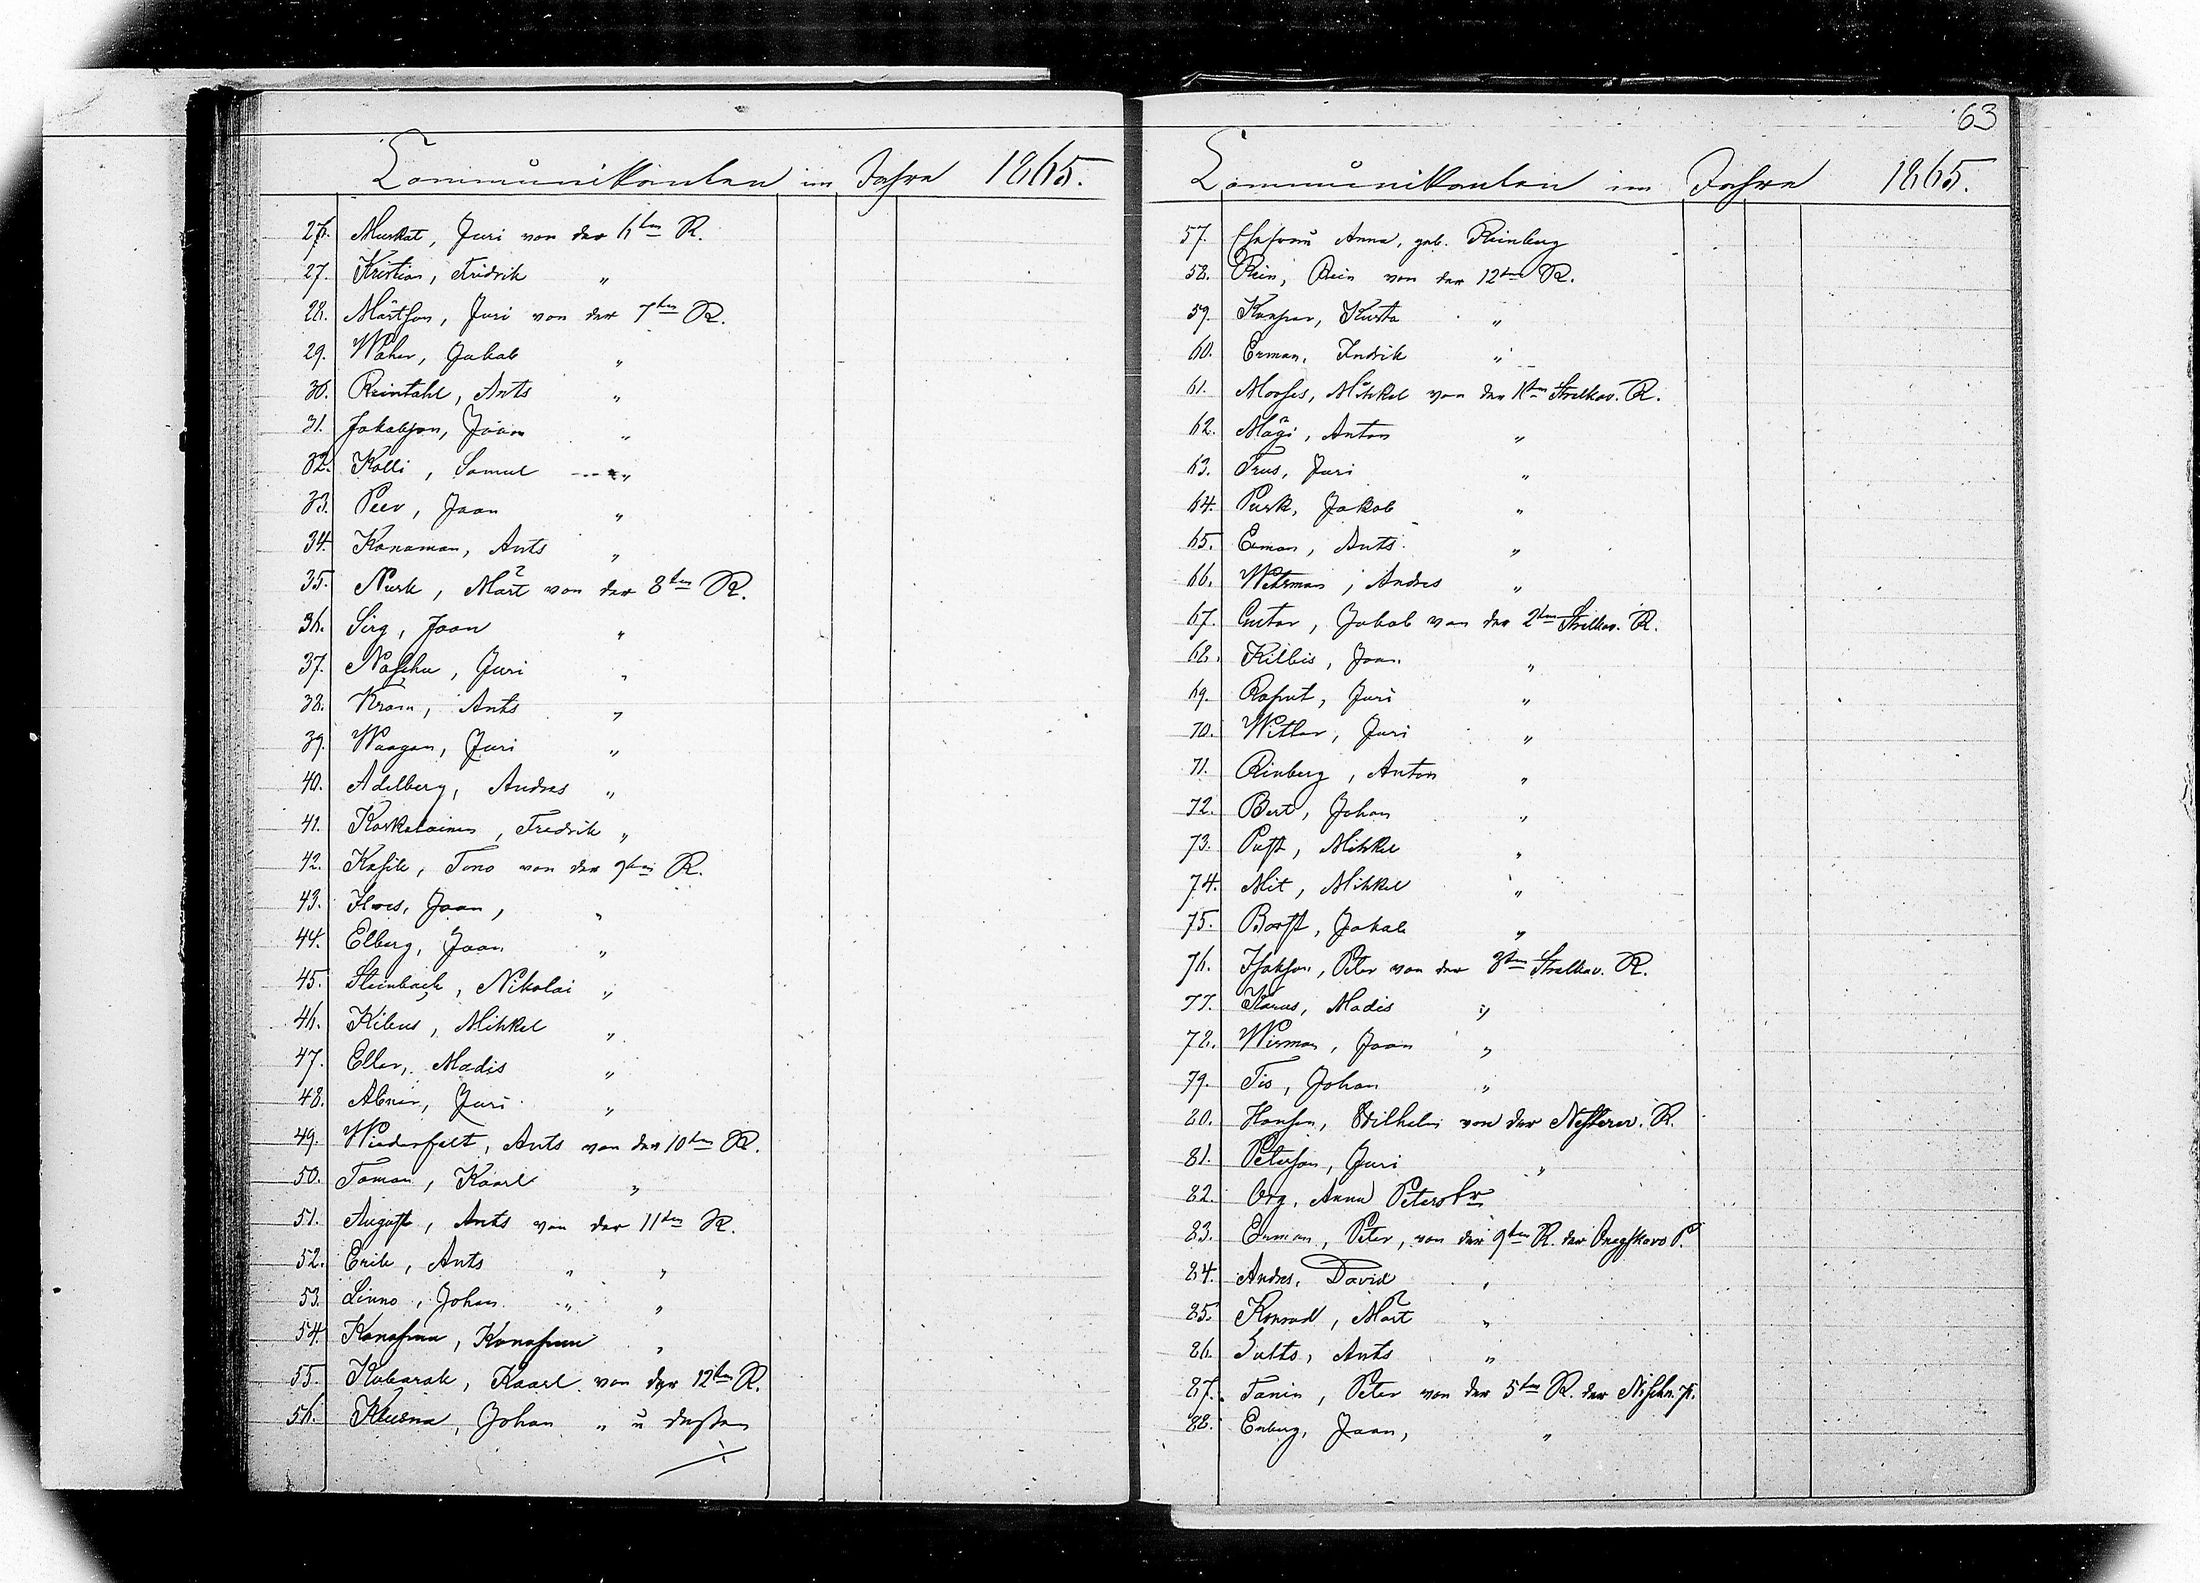 Communikanten im Jahre 1865.
26. Murkat, Juri von der 6ten R.
27. Kristian, Fridrik "
28. Märtson, Juri von der 7ten R.
29. Waher, Jakob "
30. Reintahl, Ants "
31. Jakobson, Jaan "
32. Kolli, Samul "
33. Peev, Jaan "
34. Kanaman, Ants "
35. Nurk, Märt von der 8ten R.
36. Sirg, Jaan "
37. Juri "
38. Krām, Ants "
39. Waagan, Juri "
40. Adelberg, Andres "
41. Koskelainen, Fredrik "
42. Kasik, Tono von der 9ten R.
43. Ilves, Jaan, "
44. Elberg, Jaan "
45. Steinbach, Nikolai "
46. Kileus, Mihkel "
47. Eller, Madis "
48. Abner, Juri "
49. Wiederfelt, Ants von der 10ten R.
50. Toman, Kaarl "
51. August, Ants von der 11ten R.
52. Erik, Ants " "
53. Linno, Johan " "
54. "
55. Kubarak, Kaarl von der 12ten R.
56. Johan " u dessen
63
Communikanten im Jahre 1865.
57. Ehefrau Anna, geb. Reinberg
58. Rein, Rein von der 12ten R.
59. Kaspar, Kusta "
60. Erman, Indrik "
61. Mooses, Mihkel von der 1ten Strelkow. R.
62. Mägi, Anton "
63. Trus, Juri "
64. Pusk, Jakob "
65. Erman, Ants "
66. Andres "
67. Gustav, Jakob von der 2ten Strelkow. R.
68. Killis, Jaan "
69. Juri "
70. Witler, Juri "
71. Rinberg, Anton "
72. Bert, Johan "
73. Pust, Mihkel "
74. Mit, Mihkel "
75. Jakob "
76. Isakson, Peter von der 3ten Strelkow. R.
77. Madis "
78. Wirman, Jaan "
79. Tis, Johan "
80. Hansen, Wilhelm von der Nesterow. R.
81. Peterson, Juri "
82. Org, Anna
83. Peter, von der 9ten R. der
84. Andres, David "
85. Konrad, Märt "
86. Sults, Ants "
87. Tanin, Peter von der 5ten R. der
88. Enberg, Jaan, "